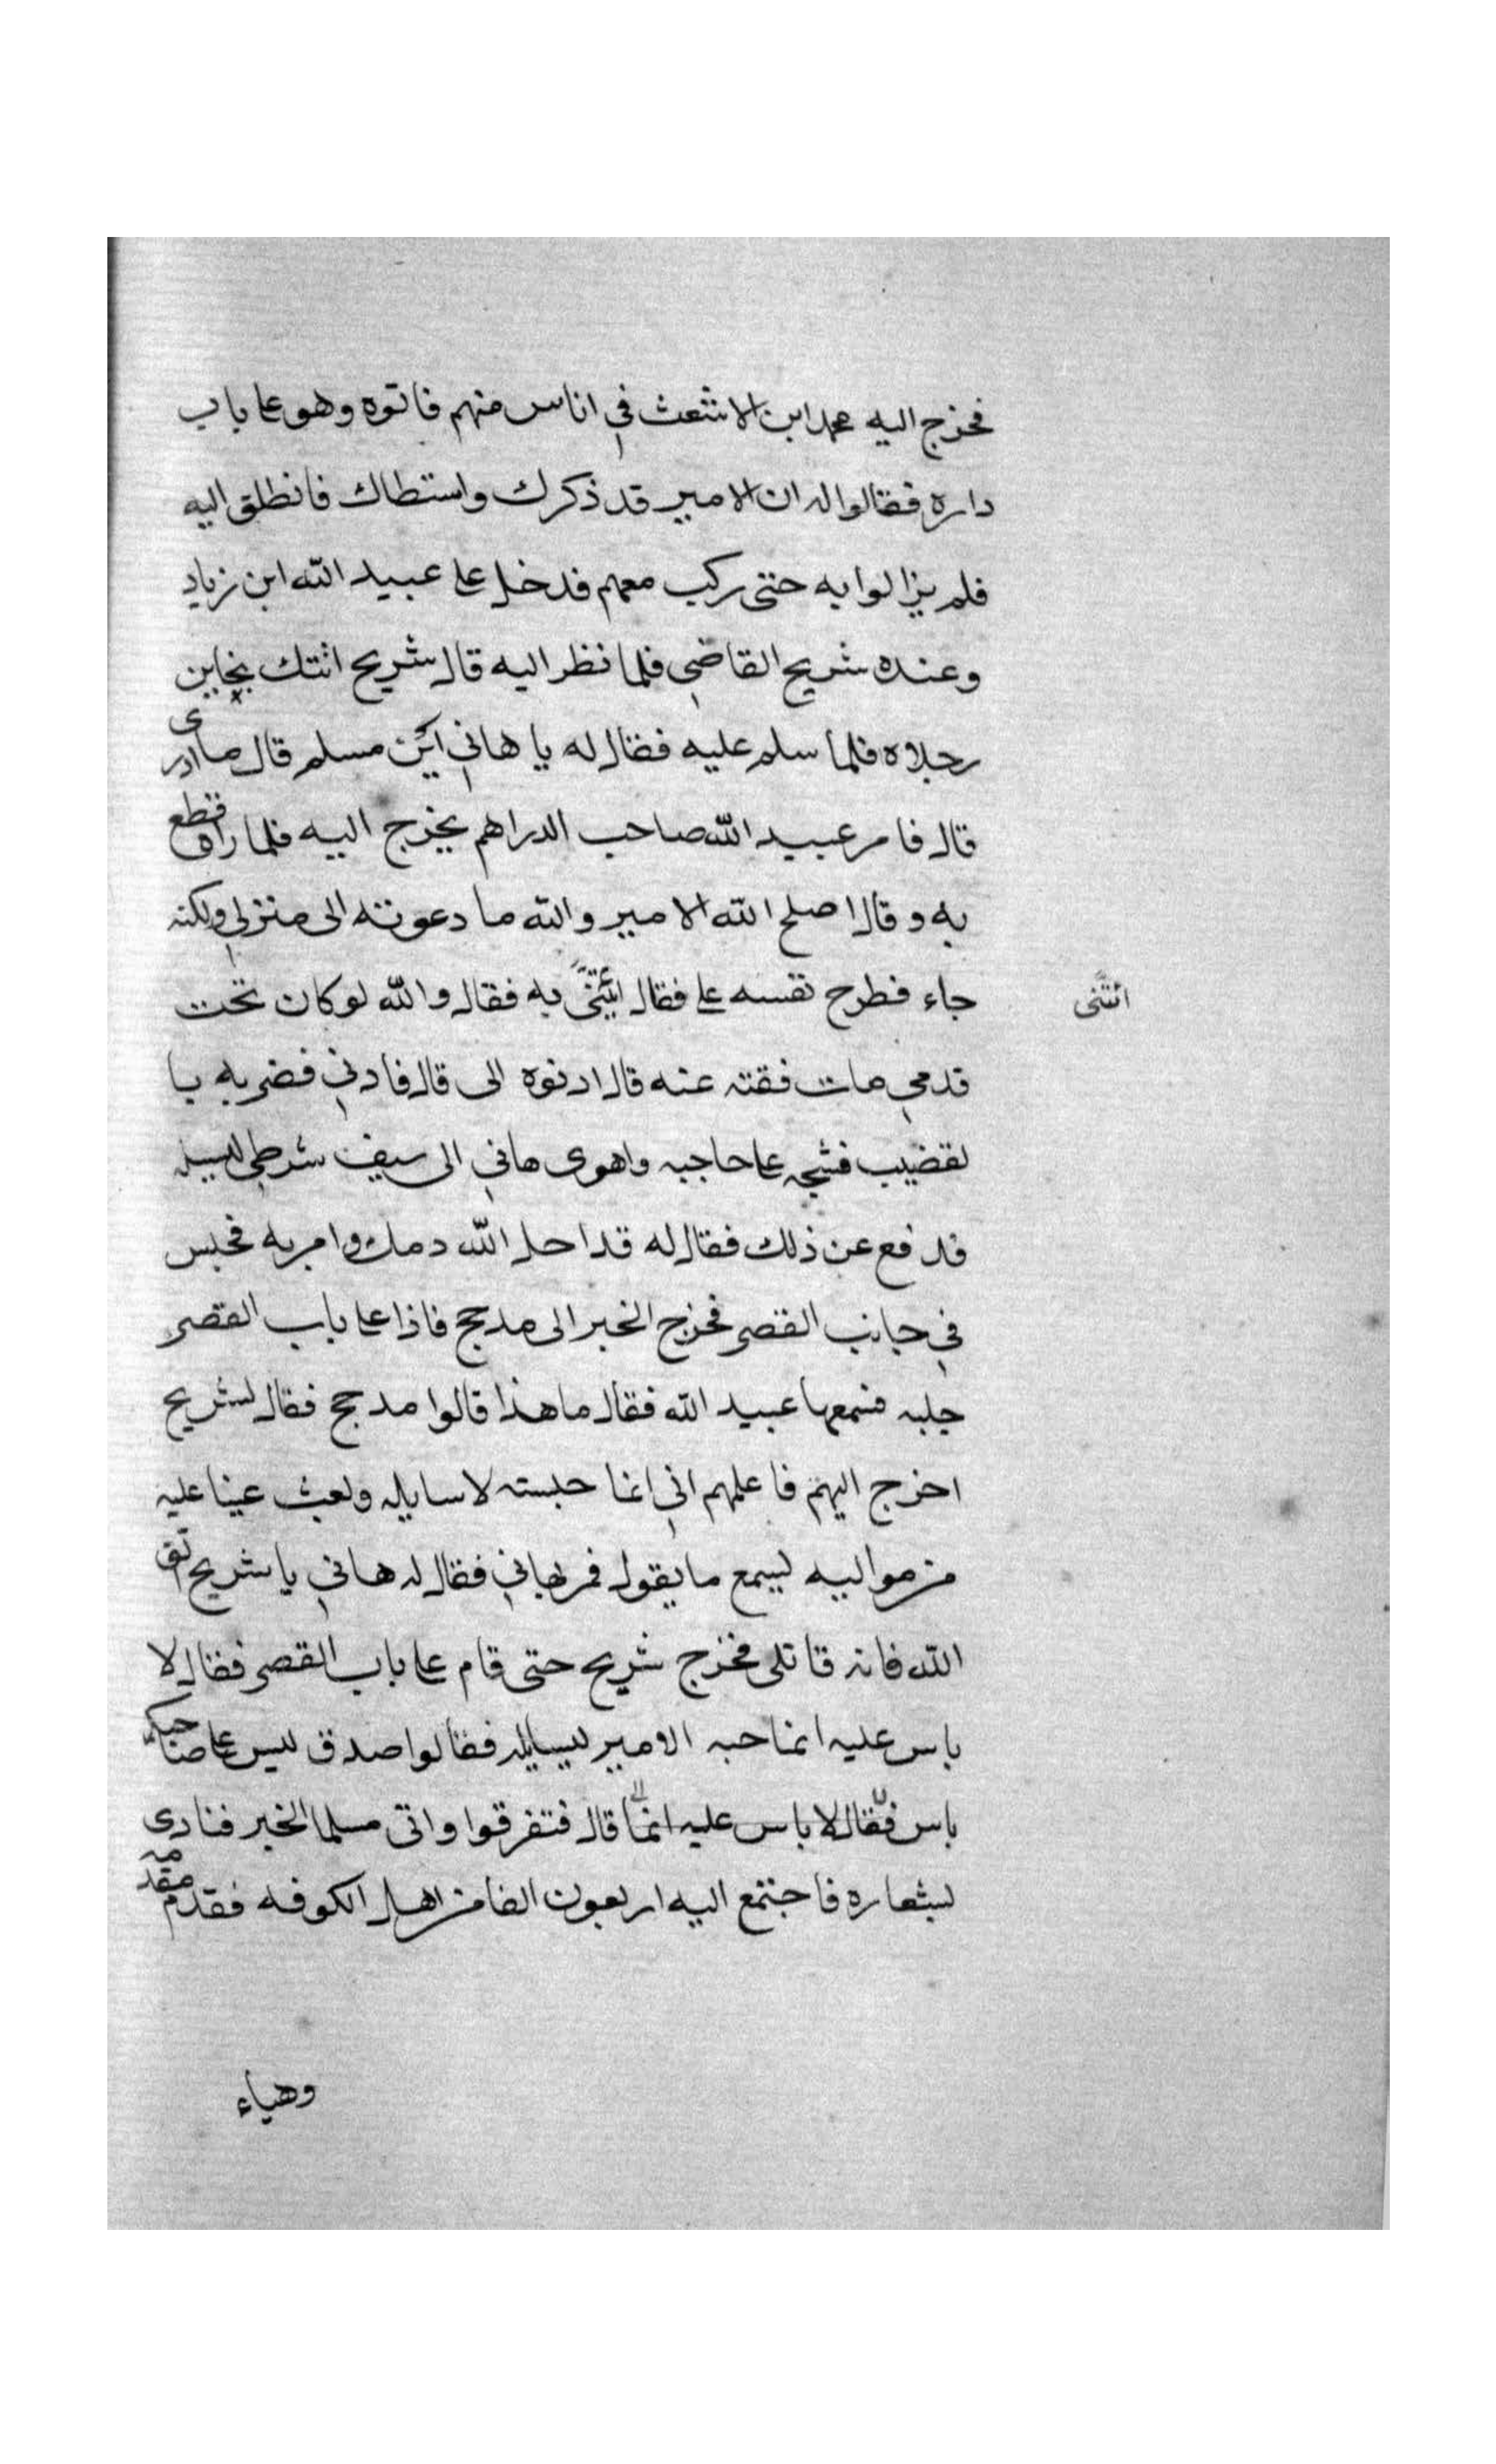 فخرج اليه محمد ابن الاشعث في اناس منهم فاتوه وهو على باب
داره فقالوا له ان الامير قد ذكرك واستطاك فانطلق اليه
فلم يزالوا به حتى ركب معهم فدخل على عبيد الله ابن زياد
وعنده شريح القاضي فلما نظر اليه قال شريح اتتك بخاين
رجلاه فلما سلم عليه فقال له يا هاني اين مسلم قال ما ادرى
قال فامر عبيد الله صاحب الدراهم يخرج اليه فلما راه قطع
به وقال اصلح الله الامير والله ما دعوته الى منزلي ولكنه
جاء فطرح نفسه على فقال ايتنى به فقال والله لو كان تحت
ائتنى
قدمي مات فقته عنه قال ادنوه الى قال فادني فضربه با
لقضيب فشجه على حاجبه واهوى هاني الى سيف شرطي ليسله
فدفع عن ذلك فقال له قد احل الله دمك وامر به فحبس
في جانب القصر فخرج الخبر الى مدحج فاذا على باب القصر
جلبه فسمعها عبيد الله فقال ما هذا قالوا مدحج فقال لشريح
اخرج اليهم فاعلمهم اني انما حبسته لاسايله وبعث عينا عليه
من مواليه ليسمع ما يقول فمر بهاني فقال له هاني يا شريح اتق
الله فانه قاتلى فخرج شريح حتى قام على باب القصر فقال لا
باس عليه انما حبه الامير ليسايله فقالوا صدق ليس على صاحبكم
باس فقال لا باس عليه انما قال فتفرقوا واتى مسلما الخبر فنادى
بشعاره فاجتمع اليه اربعون الفا من اهل الكوفه فقدم مقدمه
وهياء